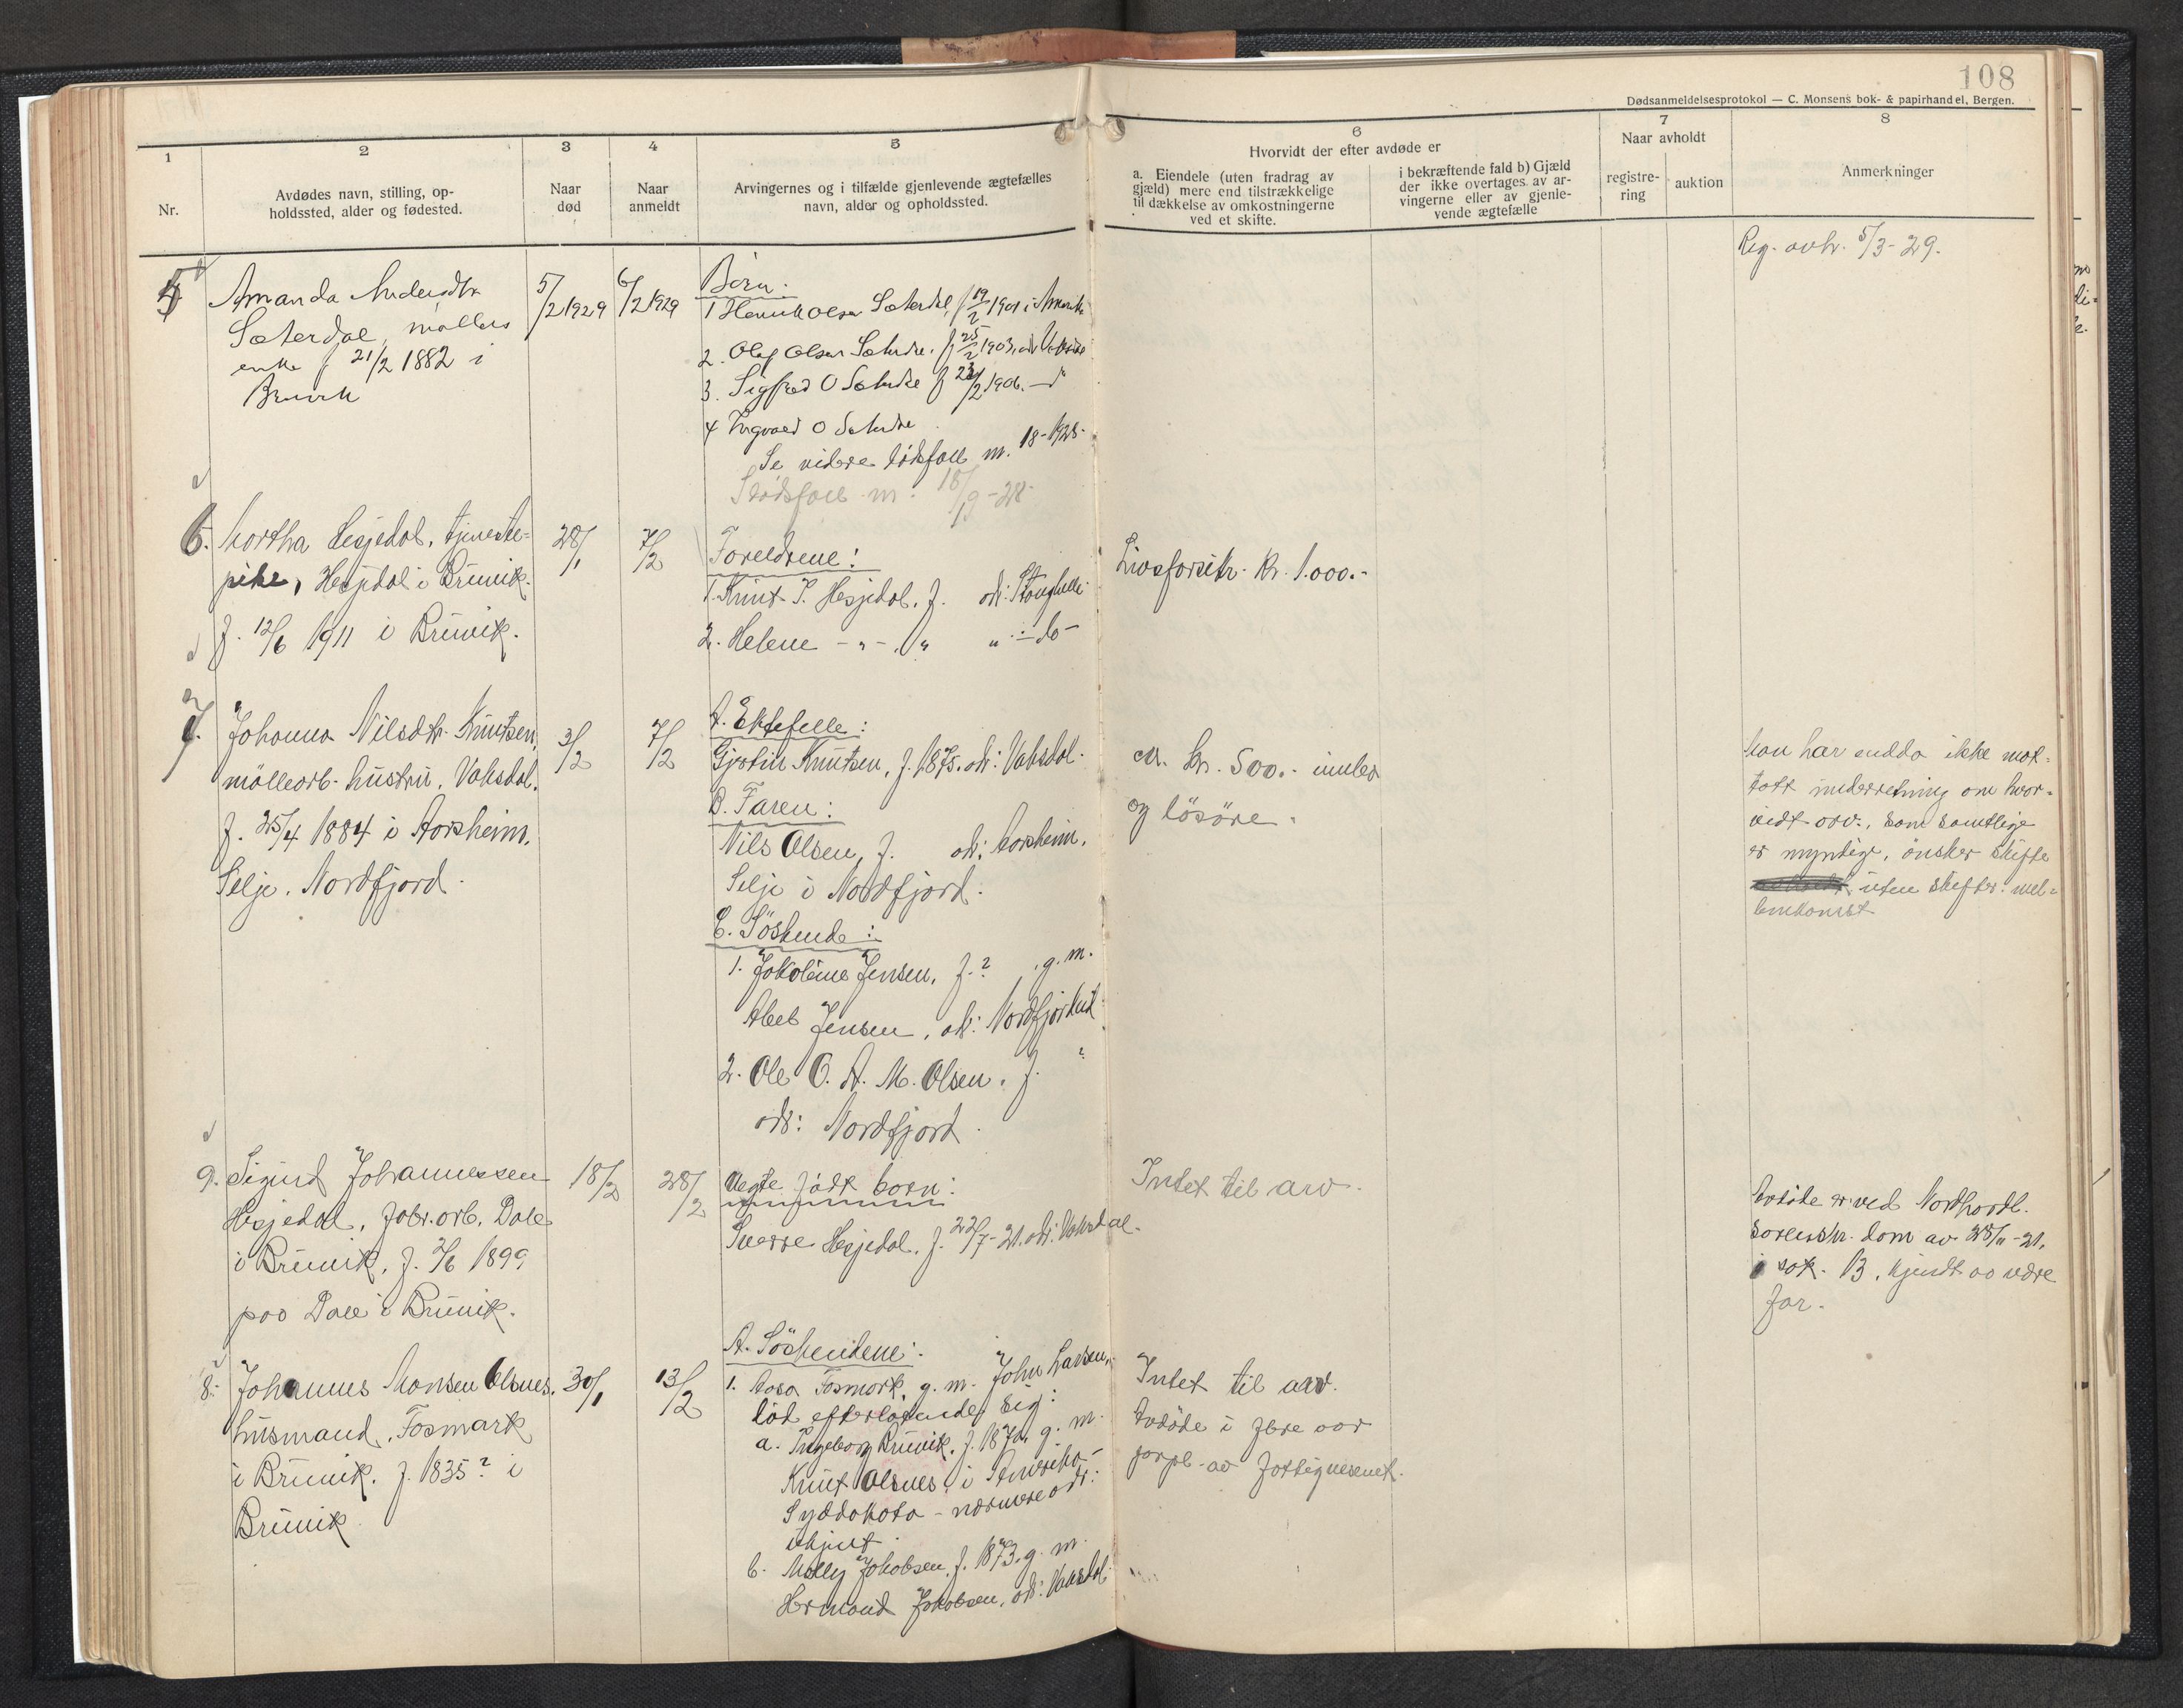 108
Dødsanmeldelsesprotokol — C. Monsens bok- & papirhandel, Bergen.
1
Nr.
2
Avdødes navn, stilling, op-
holdssted, alder og fødested.
3
Naar
død
4
Naar
anmeldt
5
Arvingernes og i tilfælde gjenlevende ægtefælles
navn, alder og opholdssted.
6
Hvorvidt der efter avdøde er
a. Eiendele (uten fradrag av
gjæld) mere end tilstrækkelige
til dækkelse av omkostningerne
ved et skifte.
i bekræftende fald b) Gjæld
der ikke overtages av ar-
vingerne eller av gjenle-
vende ægtefælle
7
Naar avholdt
registre-
ring
auktion
8
Anmerkninger
5
Amanda Andersdtr
Sæterdal, møllers
enke f 21/2 1882 i
Bruvik
5/2 1929
6/2 1929
Børn.
1 Henrik Olsen Sæterdal, f 19/2 1901 i Amerika
2. Olaf Olsen Sæterdal. f 25/2 1903, adr Vaksdal
3. Sigfred O Sæterdal f 23/2 1906. —"
4 Ingvald O Sæterdal
Se videre dødsfall m. 18-1928.
Dødsfall m. 18/9-28.
Reg. avh. 5/3-29.
6. Martha Hesjedal, tjeneste=
pike, Hesjedal i Bruvik.
f. 12/6 1911 i Bruvik.
28/1
7/2
Foreldrene:
1. Knut P. Hesjedal. f. adr: Stanghelle
2. Helene - " - " " - do -
Livsforsikr. Kr. 1.000.-
7. Johanna Nilsdtr. Knutsen,
møllearb. hustru, Vaksdal.
f. 25/4 1884 i Aarsheim,
Selje. Nordfjord.
3/2
7/2
A. Ektefelle:
Gjertin Knutsen, f. 1875. adr: Vaksdal.
B. Faren:
Nils Olsen, f. adr: Aarsheim,
Selje i Nordfjord.
C. Søskende:
1. Jakobine Jensen, f. ? , g. m.
Abel Jensen, adr: Nordfjordeid
2. Ole O. A. M. Olsen, f. ?
adr: Nordfjord.
ca. kr. 500.- innbo
og løsøre.
Man har endda ikke mot=
tatt underretning om hvor=
vidt arv., som samtlige
er myndige, ønsker skifte
uten skifter. mel=
lemkomst
9. Sigurd Johannessen
Hesjedal, fabr.arb. Dale
i Bruvik, f. 2/6 1899
paa Dale i Bruvik.
18/2
28/2
Uegte født barn:
Sverre Hesjedal, f. 22/7-21. adr: Vaksdal.
Intet til arv.
Avdøde er ved Nordhordl.
sorenskr. dom av 28/11-21,
i sak. B, kjendt aa være
far.
8. Johannes Monsen Olsnes,
husmand, Fosmark
i Bruvik. f. 1835? i
Bruvik.
30/1
13/2
A. Søskendene:
1. Aasa Fosmark, g. m. John Larsen,
død efterlatende sig:
a. Ingeborg Bruvik, f. 1870 g. m.
Knut Olsnes, i Amerika -
Syddakota - nærmere adr:
ukjent.
b. Molly Jakobsen, f. 1873. g. m.
Hermand Jakobsen, adr: Vaksdal.
Intet til arv.
Avdøde i flere aar
forpl. av fattigvesenet.